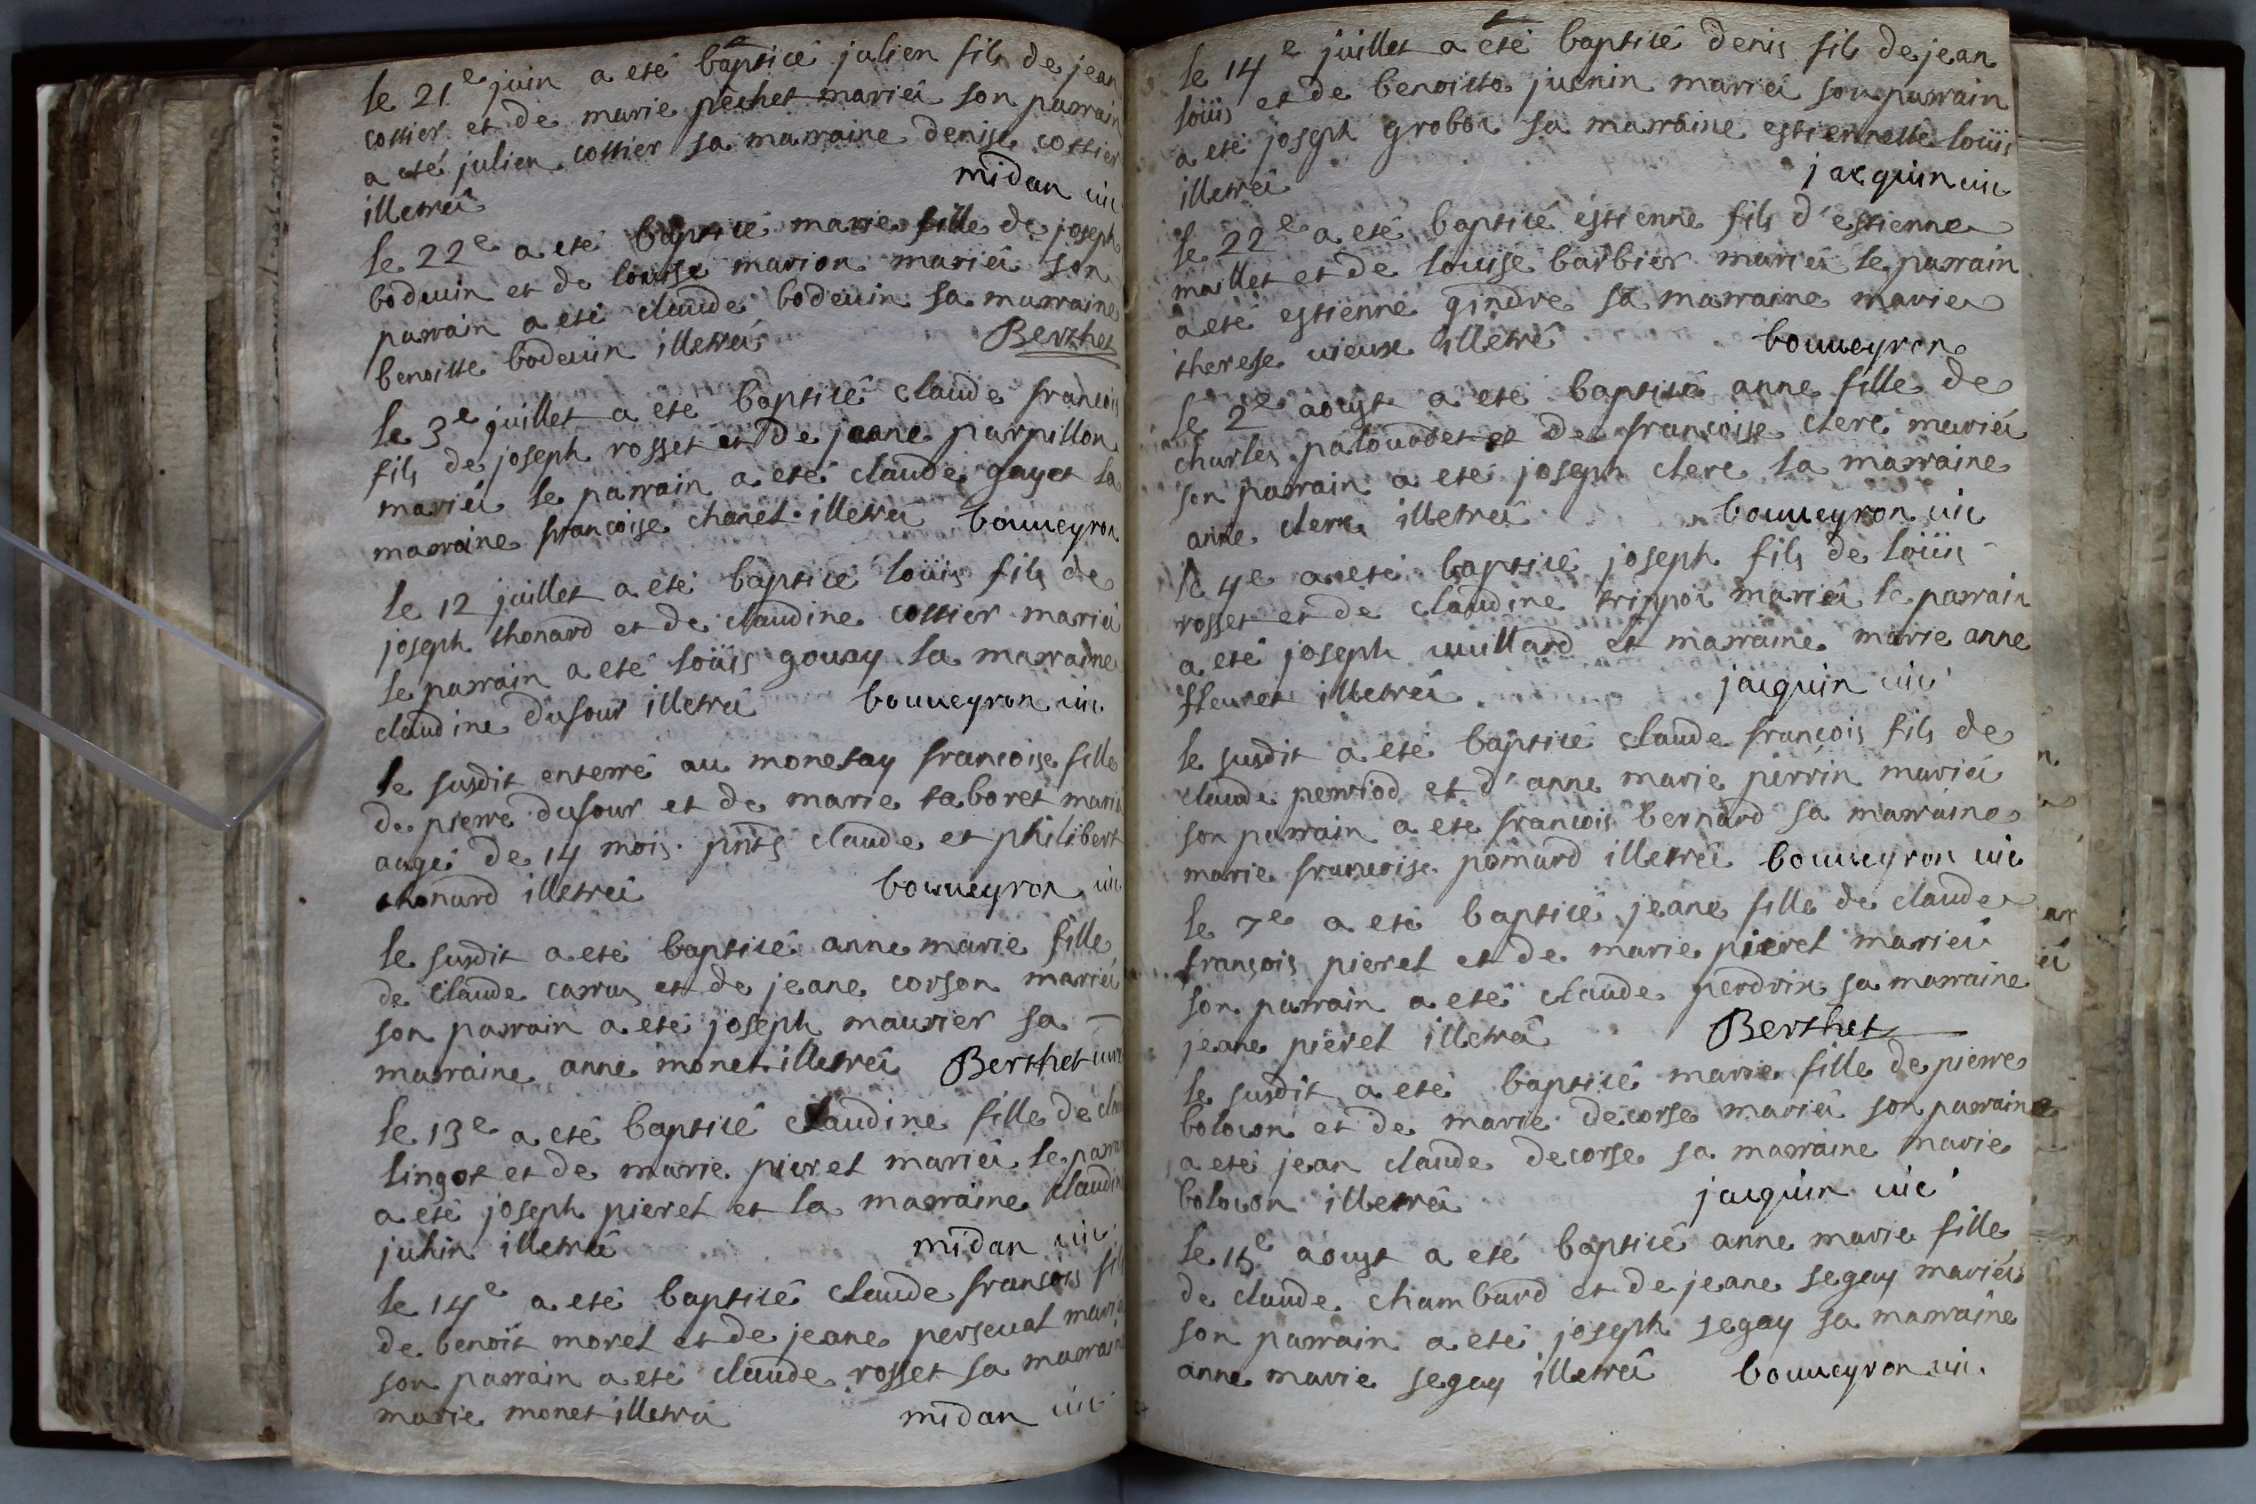 le 21e juin a eté bapticé julien fils de jean
cottier et de marie pêchet mariéi son parrain
a eté julien cottier sa marraine denise cottier
illetréi midan vic
le 22e a eté bapticé marie fille de joseph
bodevin et de louise marion mariéi son
parrain a eté claude bodevin sa marraine
benoitte bodevin illetrés Berthet
le 3e juillet a eté bapticé claude francois
fils de joseph rosset et de jeane parpillon
mariéi le parrain a eté claude gayet la
marraine francoise chanel illetréi bouveyron
le 12 juillet a eté bapticé loüis fils de
joseph thonard et de claudine cottier mariéi
le parrain a eté loüis gouay la marraine
claudine dufour illetréi bouveyron vic
le susdit enterré au monetay francoise fille
de pierre dufour et de marie taboret mariéi
augé de 14 mois pnts claude et philibert
thonard illetréi bouveyron vic
le susdit a eté bapticé anne marie fille
de claude carrus et de jeane corson mariéi
son parrain a eté joseph maurier sa
marraine anne monet illetréi Berthet vic
le 13e a eté bapticé claudine fille de
lingot et de marie pierel mariéi le
a eté joseph pierel et la marraine claudine
juhin illetréi midan vic
le 14e a eté bapticé claude francois fils
de benoît morel et de jeane perseval mariéi
son parrain a eté claude rosset sa marraine
marie monet illetréi midan vic
le 14e juillet a eté baptisé denis fils de jean
loüis et de benoitte juenin mariéi son parrain
a eté joseph groboz sa marraine estiennette loüis
illetréi jacquin vic
le 22e a eté baptisé estienne fils d'estienne
maillet et de louise barbier mariéi le parrain
a eté estienne gindre sa marraine marie
therese vieux illetré bouveyron
le 2e aoust a eté baptisé anne fille de
charles paloudet et de francoise clerc mariéi
son parrain a eté joseph clerc la marraine
anne clerc illetréi bouveyron vic
le 4e a eté baptisé joseph fils de loüis
rosset et de claudine trippoz mariéi le parrain
a eté joseph vuillard et marraine marie anne
fleuret illetréi jacquin vic
le susdit a eté baptisé claude françois fils de
claude perriod et d'anne marie perrin mariéi
son parrain a eté francois bernard sa marraine
marie francoise pomard illetréi bouveyron vic
le 7e a eté baptisé jeane fille de claude
françois pierel et de marie pierel mariéi
son parrain a eté claude perdrix sa marraine
jeane pierel illetréi Berthet
le susdit a eté baptisé marie fille de pierre
bolozon et de marie decorse mariéi son parrain
a eté jean claude decorse sa marraine marie
bolozon illetréi jacquin vic
le 15e aoust a eté baptisé anne marie fille
de claude chambard et de jeane segay mariéi
son parrain a eté joseph segay sa marraine
anne marie segay illetréi bouveyron vic